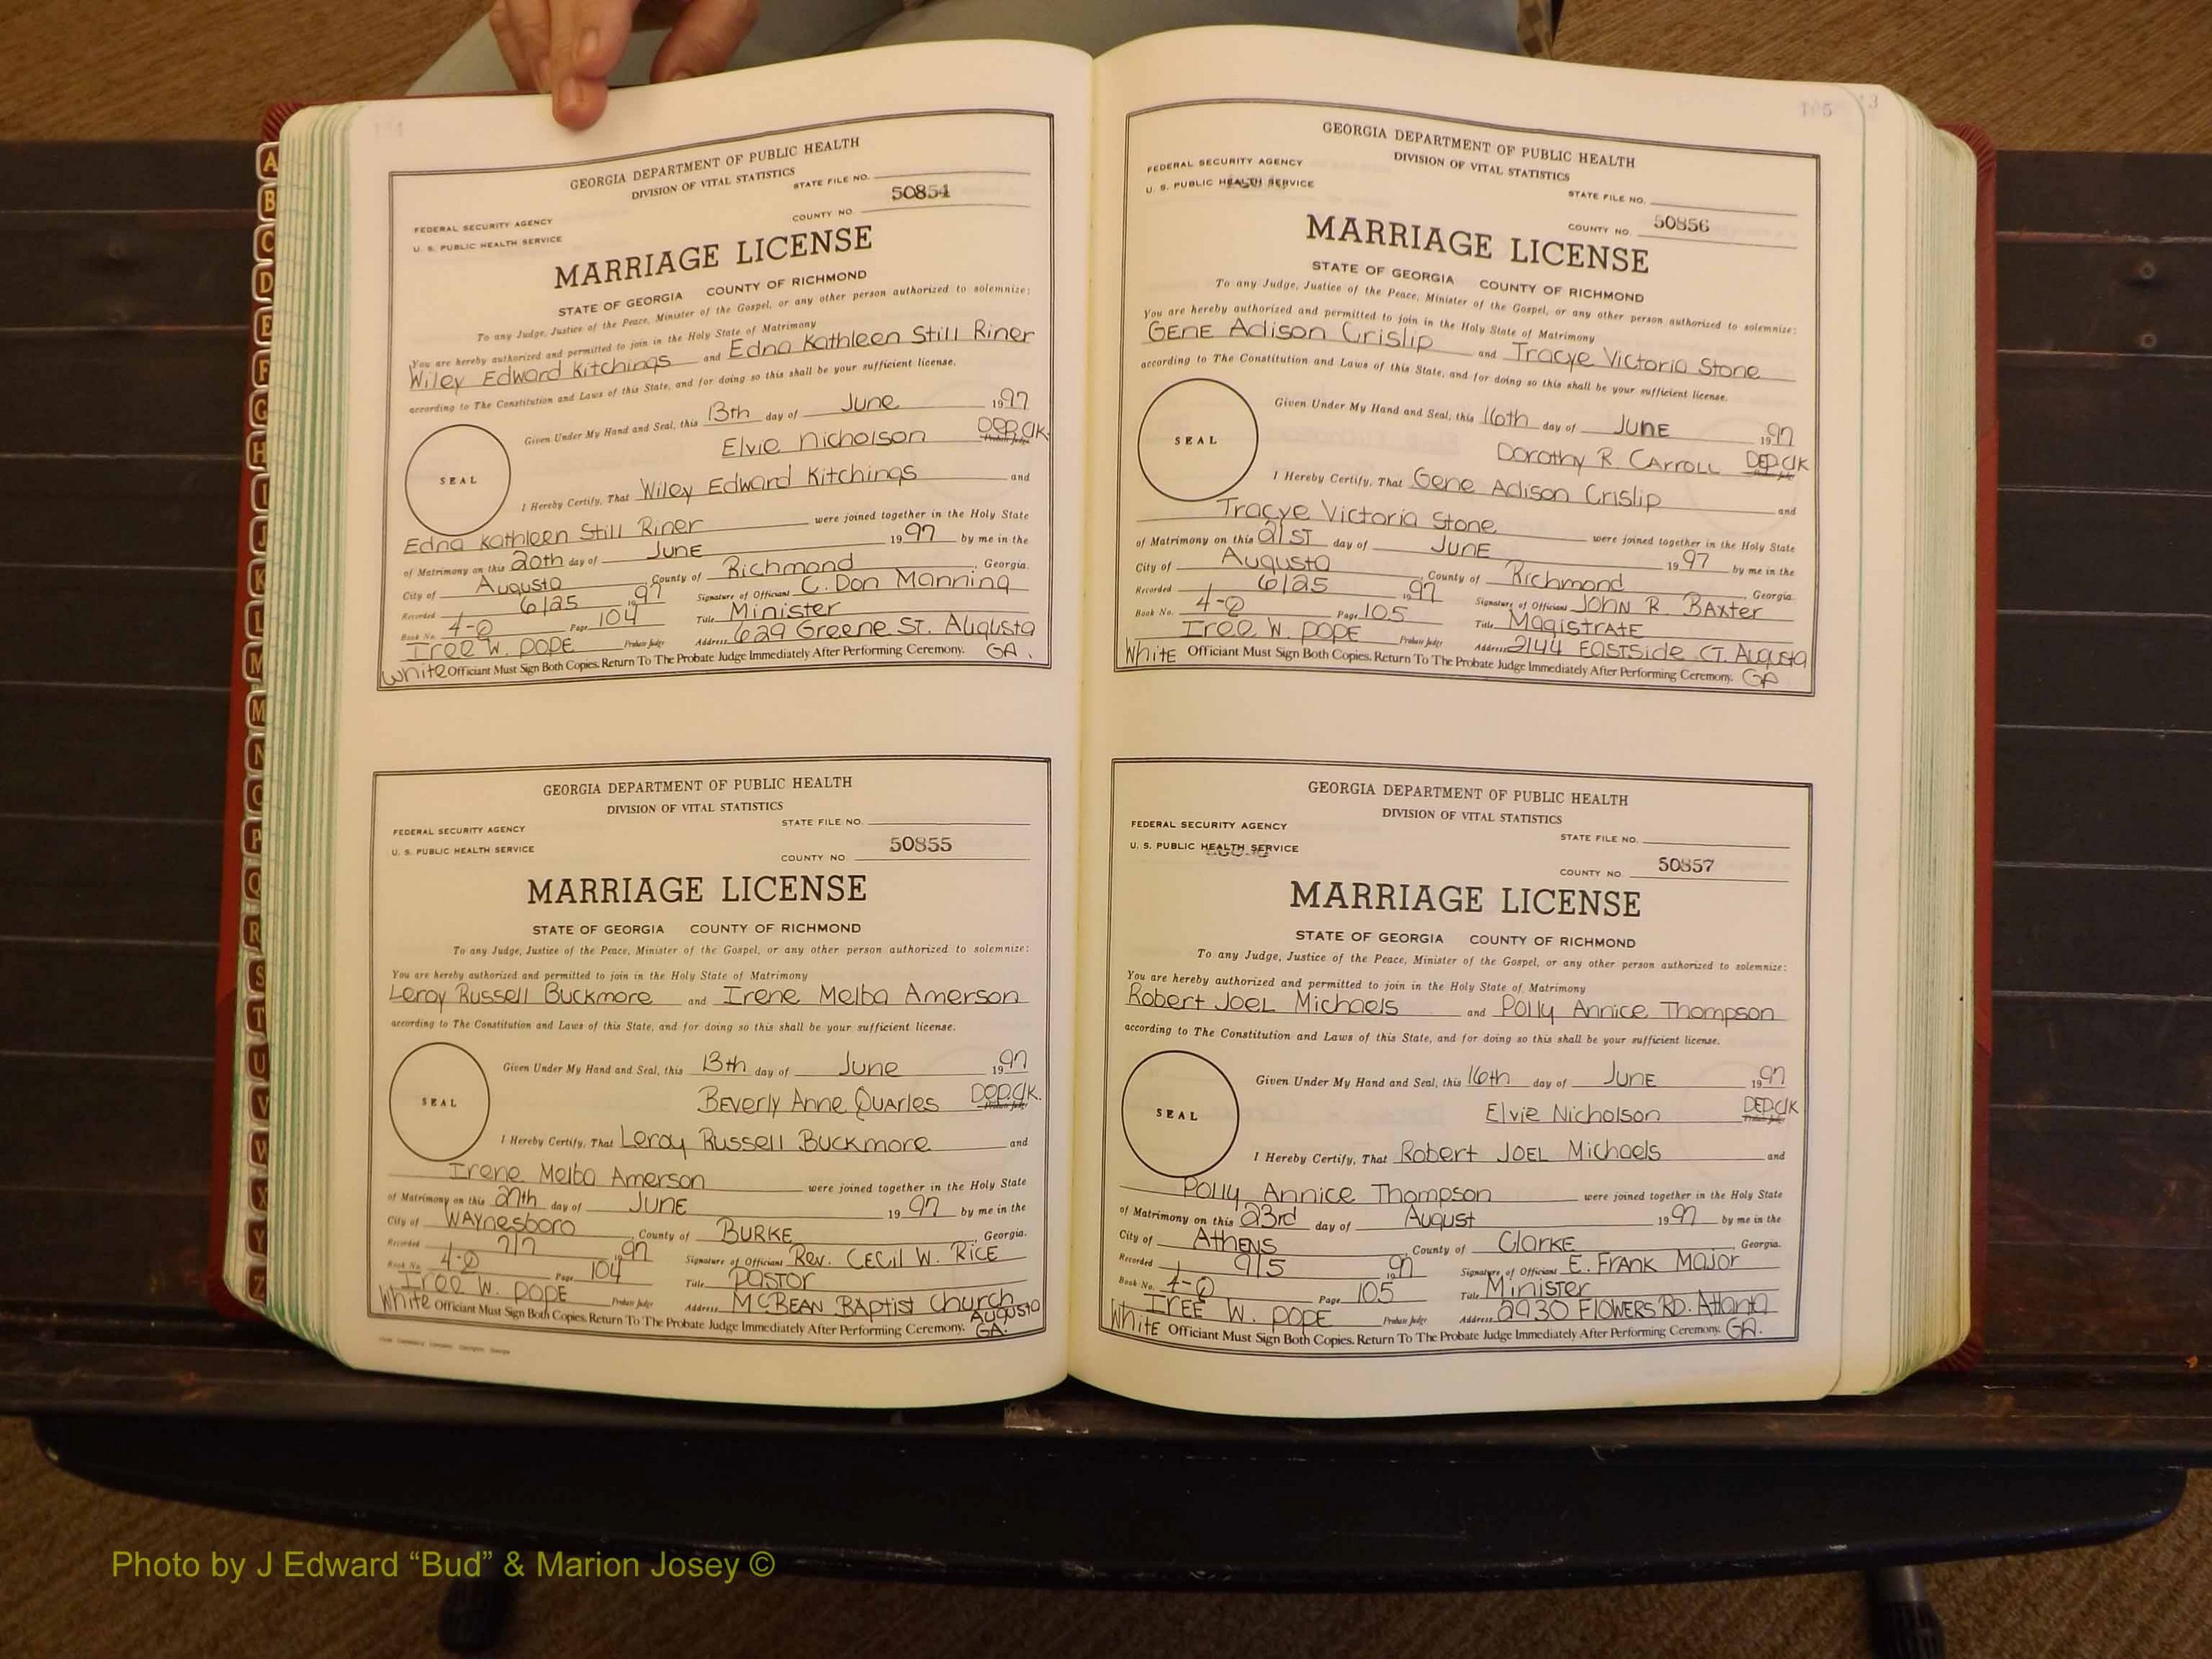 A
B
C
D
E
F
G
H
I
J
K
L
M
M
N
O
P
Q
R
S
T
U
V
W
X
Y
Z
GEORGIA DEPARTMENT OF PUBLIC HEALTH
DIVISION OF VITAL STATISTICS
STATE FILE NO.
FEDERAL SECURITY AGENCY
U. S. PUBLIC HEALTH SERVICE
COUNTY NO. 50854
MARRIAGE LICENSE
STATE OF GEORGIA COUNTY OF RICHMOND
To any Judge, Justice of the Peace, Minister of the Gospel, or any other person authorized to solemnize:
You are hereby authorized and permitted to join in the Holy State of Matrimony
Wiley Edward Kitchings and Edna Kathleen Still Riner
according to The Constitution and Laws of this State, and for doing so this shall be your sufficient license.
Given Under My Hand and Seal, this 13th day of June 1997
Elvie Nicholson DEP. CLK. Probate Judge
SEAL
I Hereby Certify, That Wiley Edward Kitchings and
Edna Kathleen Still Riner were joined together in the Holy State
of Matrimony on this 20th day of June 1997 by me in the
City of Augusta, County of Richmond, Georgia.
Recorded 6/25 1997 Signature of Officiant C. Don Manning
Book No. 4-Q Page 104 Title Minister
Iree W. Pope Probate Judge Address 629 Greene St. Augusta
White Officiant Must Sign Both Copies. Return To The Probate Judge Immediately After Performing Ceremony. GA.
GEORGIA DEPARTMENT OF PUBLIC HEALTH
DIVISION OF VITAL STATISTICS
STATE FILE NO.
FEDERAL SECURITY AGENCY
U. S. PUBLIC HEALTH SERVICE
COUNTY NO 50855
MARRIAGE LICENSE
STATE OF GEORGIA COUNTY OF RICHMOND
To any Judge, Justice of the Peace, Minister of the Gospel, or any other person authorized to solemnize:
You are hereby authorized and permitted to join in the Holy State of Matrimony
Leroy Russell Buckmore and Irene Melba Amerson
according to The Constitution and Laws of this State, and for doing so this shall be your sufficient license.
Given Under My Hand and Seal, this 13th day of June 1997
Beverly Anne Quarles DEP. CLK. Probate Judge
SEAL
I Hereby Certify, That Leroy Russell Buckmore and
Irene Melba Amerson were joined together in the Holy State
of Matrimony on this 27th day of June 1997 by me in the
City of Waynesboro, County of Burke, Georgia.
Recorded 7/7 1997 Signature of Officiant Rev. Cecil W. Rice
Book No. 4-Q Page 104 Title Pastor
Iree W. Pope Probate Judge Address McBean Baptist Church Augusta
White Officiant Must Sign Both Copies. Return To The Probate Judge Immediately After Performing Ceremony. GA.
105
GEORGIA DEPARTMENT OF PUBLIC HEALTH
DIVISION OF VITAL STATISTICS
FEDERAL SECURITY AGENCY
U. S. PUBLIC HEALTH SERVICE
STATE FILE NO.
COUNTY NO. 50856
MARRIAGE LICENSE
STATE OF GEORGIA COUNTY OF RICHMOND
To any Judge, Justice of the Peace, Minister of the Gospel, or any other person authorized to solemnize:
You are hereby authorized and permitted to join in the Holy State of Matrimony
Gene Adison Crislip and Tracye Victoria Stone
according to The Constitution and Laws of this State, and for doing so this shall be your sufficient license.
Given Under My Hand and Seal, this 16th day of June 1997
Dorothy R. Carroll DEP. CLK Probate Judge
SEAL
I Hereby Certify, That Gene Adison Crislip and
Tracye Victoria Stone were joined together in the Holy State
of Matrimony on this 21st day of June 1997 by me in the
City of Augusta, County of Richmond, Georgia.
Recorded 6/25 1997 Signature of Officiant John R. Baxter
Book No. 4-Q Page 105 Title Magistrate
Iree W. Pope Probate Judge Address 2144 Eastside Ct. Augusta
White Officiant Must Sign Both Copies. Return To The Probate Judge Immediately After Performing Ceremony. GA
GEORGIA DEPARTMENT OF PUBLIC HEALTH
DIVISION OF VITAL STATISTICS
FEDERAL SECURITY AGENCY
U. S. PUBLIC HEALTH SERVICE
STATE FILE NO.
COUNTY NO. 50857
MARRIAGE LICENSE
STATE OF GEORGIA COUNTY OF RICHMOND
To any Judge, Justice of the Peace, Minister of the Gospel, or any other person authorized to solemnize:
You are hereby authorized and permitted to join in the Holy State of Matrimony
Robert Joel Michaels and Polly Annice Thompson
according to The Constitution and Laws of this State, and for doing so this shall be your sufficient license.
Given Under My Hand and Seal, this 16th day of June 1997
Elvie Nicholson DEP. CLK Probate Judge
SEAL
I Hereby Certify, That Robert Joel Michaels and
Polly Annice Thompson were joined together in the Holy State
of Matrimony on this 23rd day of August 1997 by me in the
City of Athens, County of Clarke, Georgia.
Recorded 9/5 1997 Signature of Officiant E. Frank Major
Book No. 4-Q Page 105 Title Minister
Iree W. Pope Probate Judge Address 2930 Flowers Rd. Atlanta
White Officiant Must Sign Both Copies. Return To The Probate Judge Immediately After Performing Ceremony. GA.
Photo by J Edward “Bud” & Marion Josey ©